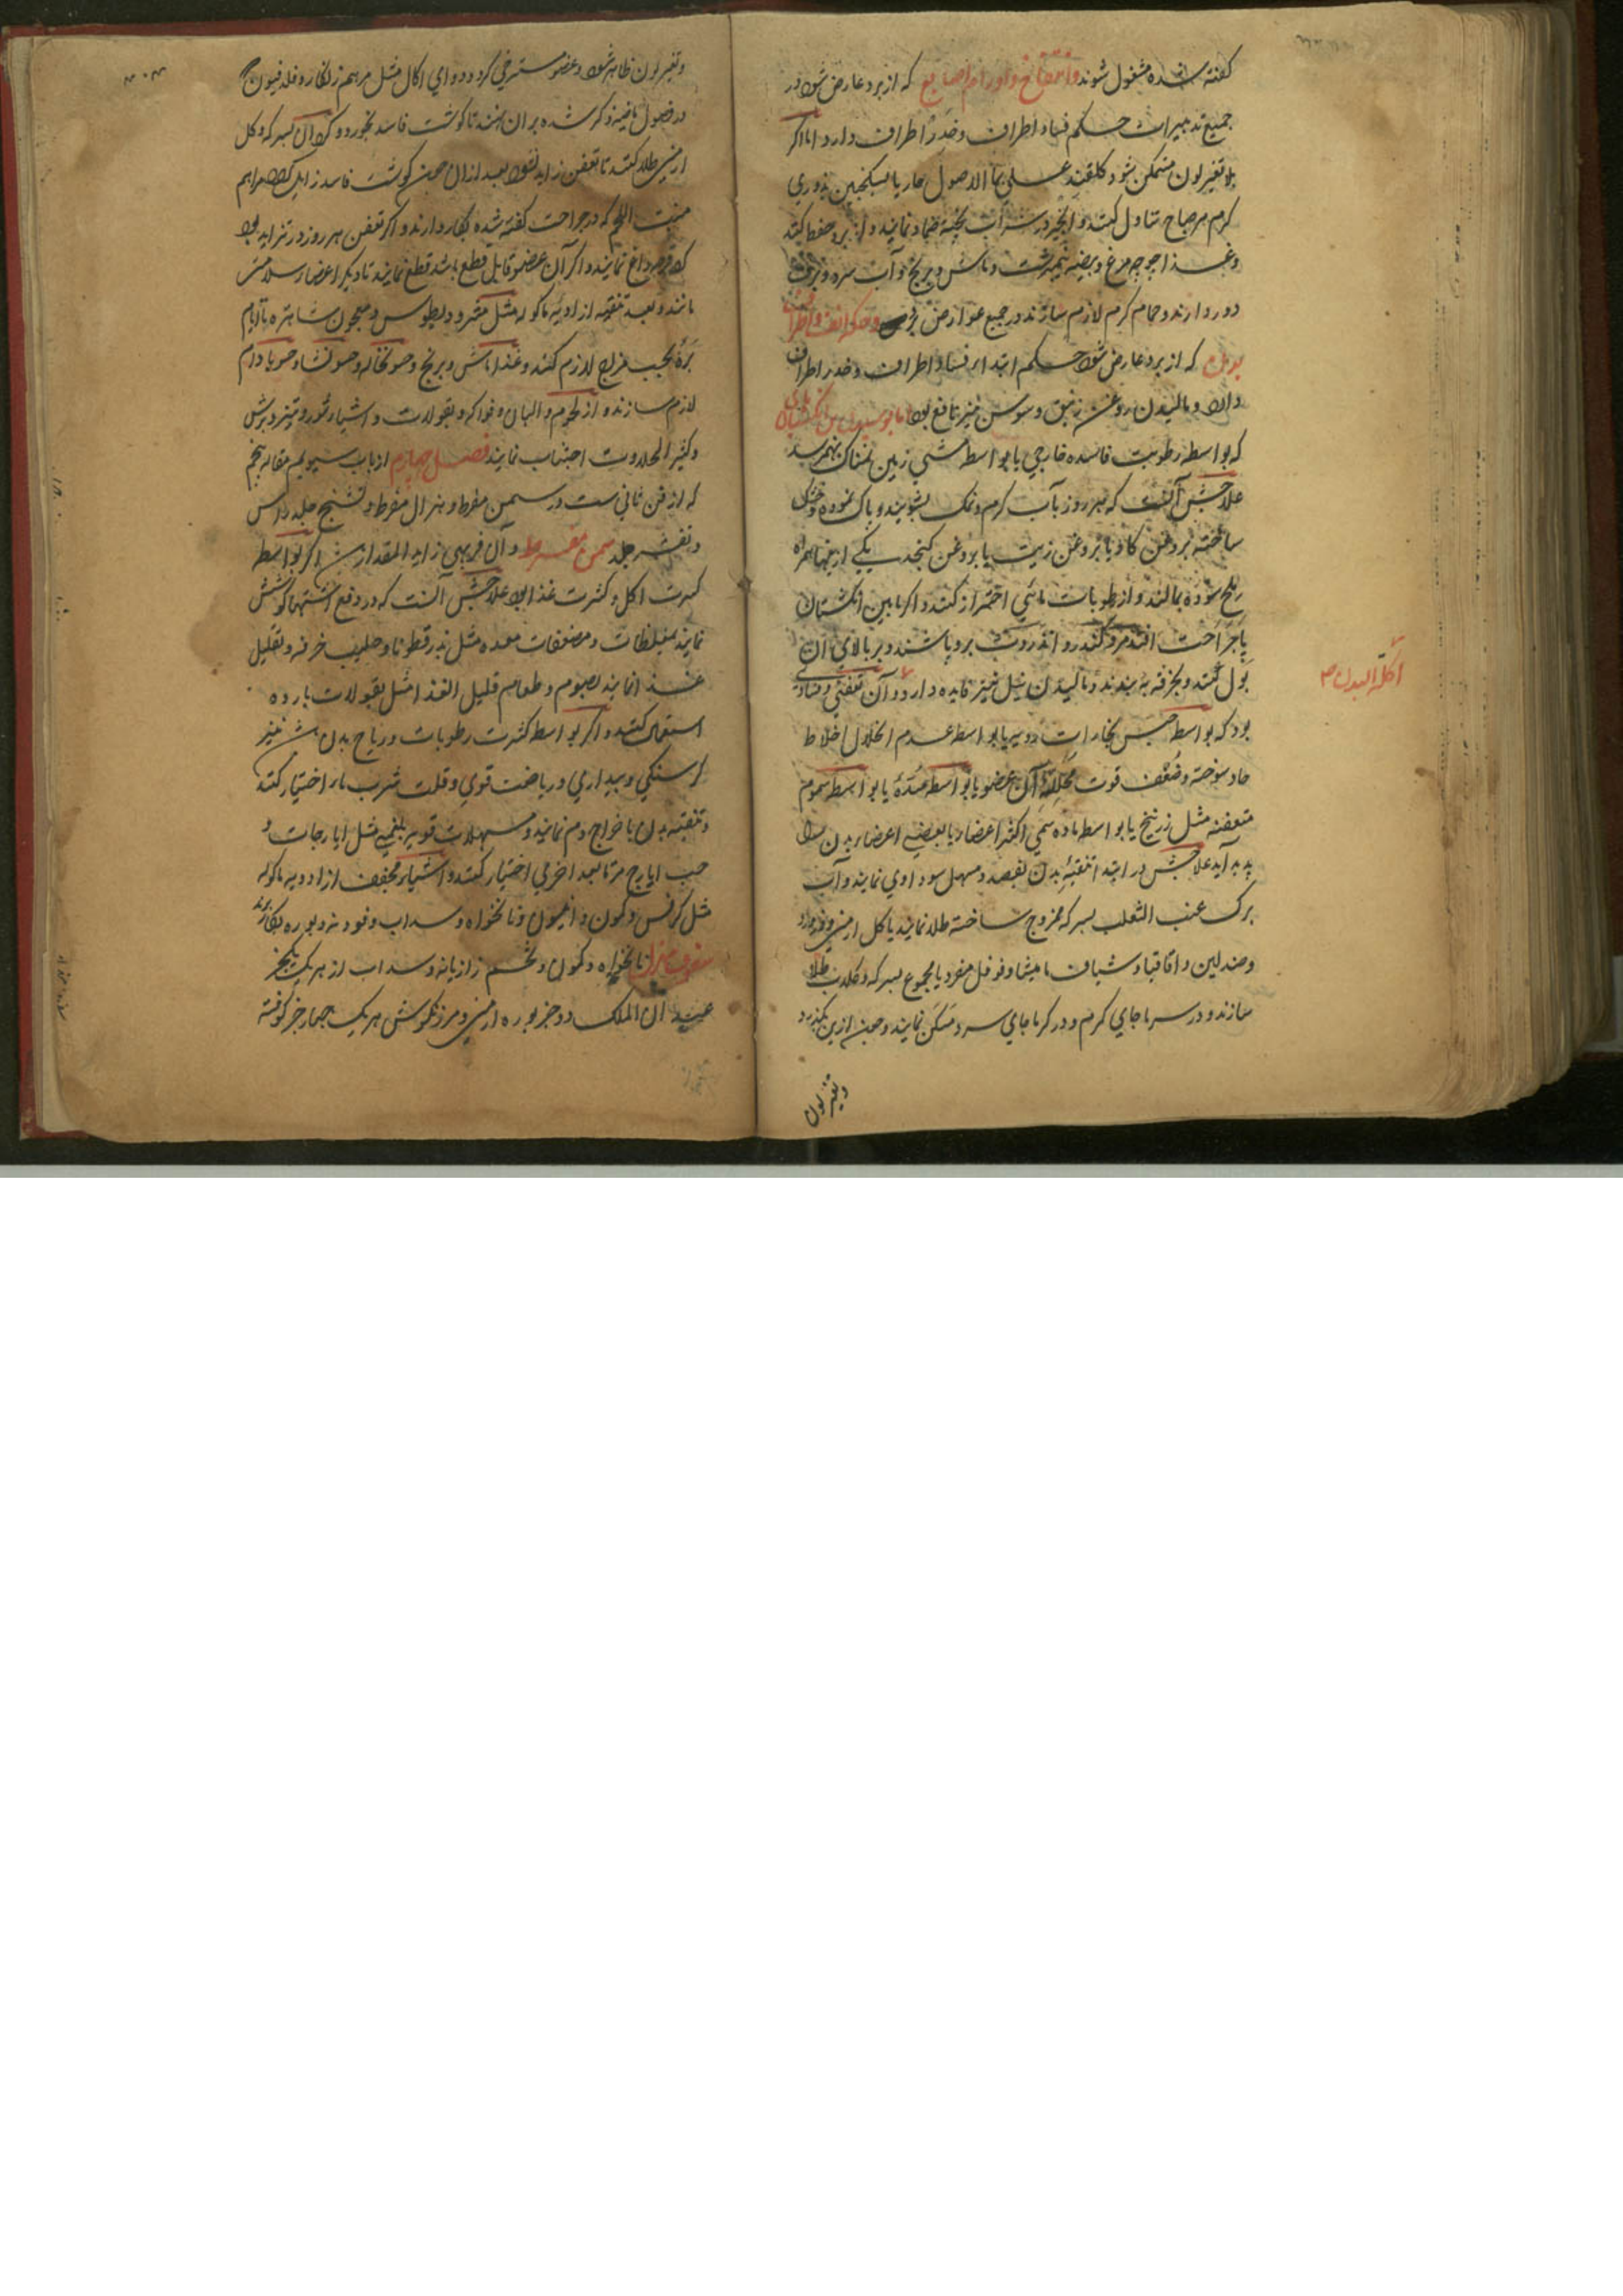 کفته شده مشغول شوند وانتفاخ واورام اصابع که از برد عارض شود در
جمیع تدبیرات حکم فساد اطراف وخدر اطراف دارد اما اکر
بلا تغیر لون متمکن شود کلقند عسلی بماء الاصول حار یا سکنجبین بذوری
کرم هر صباح تناول کنند وانجیر در شراب پخته ضماد نمایند واز برد حفظ کنند
وغذا جوجه مرغ وبیضه نیمبرشت وماش وبرنج وآب سرد وترشی
دور دارند وحمام کرم لازم سازند در جمیع عوارض برد وحکه انف واطراف
بدن که از برد عارض شود حکم ابتداء فساد اطراف وخدر اطراف
دارد ومالیدن روغن زنبق وسوسن نیز نافع بود اما پوسیدن انکشتان پای
که بواسطه رطوبت فاسده خارجی یا بواسطه مشی زمین نمناک بهم رسد
علاجش آنست که هر روز بآب کرم ونمک بشویند وپاک نموده وخشک
ساخته بروغن کاو یا بروغن زیت یا بروغن کنجد یکی ازینها همراه
ملح سوده بمالند واز رطوبات مائی احتراز کنند واکر مابین انکشتان
پا جراحت افتد مر وکندر وانذروت برو پاشند وبر بالای آن
بول کنند وبخرقه به بندند ومالیدن نیل نیز فایده دارد وآن تعفنی وفسادی
بود که بواسطه حبس بخارات ردیه یا بواسطه عدم انحلال اخلاط
حاد سوخته وضعف قوت محلله آن عضو یا بواسطه سده یا بواسطه سموم
متعفنه مثل زرنیخ یا بواسطه ماده سمی اکثر اعضا یا بعضی اعضاء بدن را
پدید آید علاجش در ابتدا تنقیه بدن بفصد ومسهل سوداوی نمایند وآب
برک عنب الثعلب بسرکه ممزوج ساخته طلا نمایند یا کل ارمنی
وصندلین واقاقیا وشیاف مامیثا وفوفل مفرد یا مجموع بسرکه وکلاب طلا
سازند ودر سرما جای کرم ودر کرما جای سرد مسکن نمایند وچون ازین بکذرد
وتغیر لون
اکلة البدن
وتغیر لون ظاهر شود وعضو مسترخی کردد دوای اکال مثل مرهم زنکار وفلدفیون
در فصول ماضیه ذکر شده بر آن نهند تا کوشت فاسد بخورد وکرد آن بسرکه وکل
ارمنی طلا کنند تا تعفن زاید نشود بعد ازان چون کوشت فاسد زایل کردد مراهم
منبت اللحم که در جراحت کفته شده بکار دارند واکر تعفن هر روز در تزاید بود
کرد قرحه داغ نمایند واکر آن عضو قابل قطع باشد قطع نمایند تا دیکر اعضا سلامت
مانند وبعد تنقیه از ادویه ماکوله مثل مثرودیطوس ومعجون شاهتره با ایام
بحسب مزاج لازم کنند وغذا ماش وبرنج وحسو نخاله وحسو نشا وحسو بادام
لازم سازند واز لحوم والبان وفواکه وبقولات واشیاء شور وتیز وترش
وکثیر الحلاوت اجتناب نمایند فصل چهارم از باب سیوم مقاله پنجم
که از فن ثانی ست در سمن مفرط وهزال مفرط وتشنج جلد راس
وتقشر جلد سمن مفرط وآن فربهی زاید المقدار ست اکر بواسطه
کثرت اکل وکثرت غذا بود علاجش آنست که در دفع اشتها کوشش
نمایند بمغلظات ومضعفات معده مثل بذر قطونا وحلیب خرفه وتقلیل
غذا نمایند بصوم وطعام قلیل الغذا مثل بقولات بارده
استعمال کنند واکر بواسطه کثرت رطوبات وریاح بدن باشد نیز
کرسنکی وبیداری وریاضت قوی وقلت شرب ماء اختیار کنند
وتنقیه بدن باخراج دم نمایند ومسهلات قویه بلغمی مثل ایارجات و
حب ایارج مرتا بعد اخری اختیار کنند واشیاء مجفف از ادویه ماکوله
مثل کرفس وکمون وانیسون ونانخواه وسداب وفودنه وبوره بکار برند
سفوف مهزل نانخواه وکمون وتخم رازیانه وسداب از هر یک یکجز
عیدان الملک دو جز بوره ارمنی ومرزنکوش هر یک چهار جز کوفته